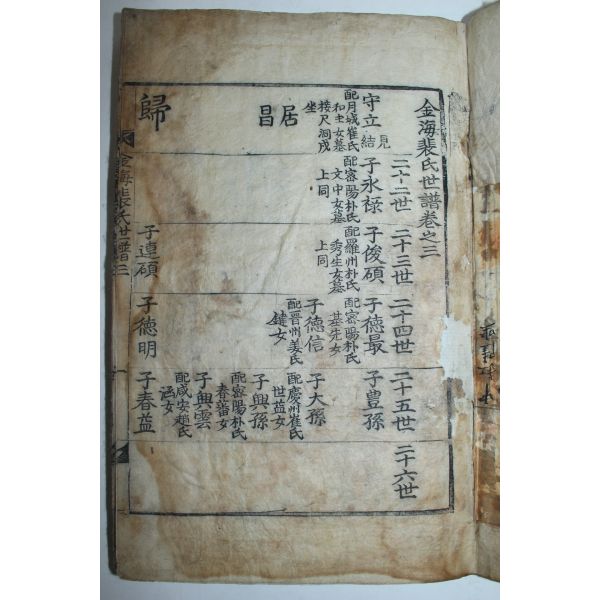 金海裴氏世譜卷之三
二十二世
二十三世
二十四世
二十五世
二十六世
守立
見
結
配月城崔氏
和主女墓
接尺洞戌
坐
子永禄
配密陽朴氏
文中女墓
上同
子俊碩
配羅州朴氏
秀生女墓
上同
子德最
配密陽朴氏
基先女
子豊孫
子大孫
配慶州崔氏
世益女
子興孫
配密陽朴氏
春蕃女
子興雲
配咸安趙氏
涵女
子德信
配晋州姜氏
鏈女
居昌
歸
子連碩
子德明
子春益
金海裴氏世譜三